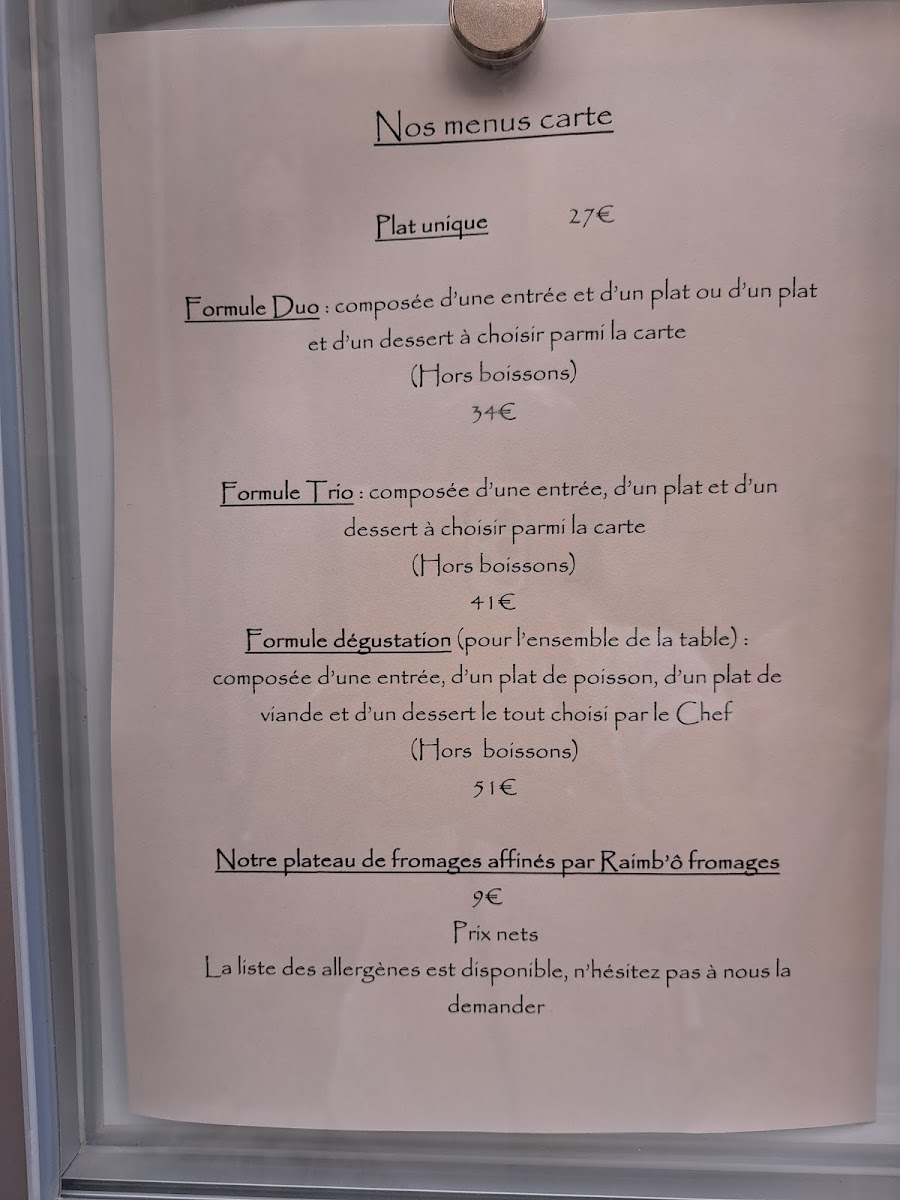 Nos menus carte
Plat unique 27€
Formule Duo : composée d'une entrée et d'un plat ou d'un plat
et d'un dessert à choisir parmi la carte
(Hors boissons)
34€
Formule Trio : composée d'une entrée, d'un plat et d'un
dessert à choisir parmi la carte
(Hors boissons)
41€
Formule dégustation (pour l'ensemble de la table) :
composée d'une entrée, d'un plat de poisson, d'un plat de
viande et d'un dessert le tout choisi par le Chef
(Hors boissons)
51€
Notre plateau de fromages affinés par Raimb'ô fromages
9€
Prix nets
La liste des allergènes est disponible, n'hésitez pas à nous la
demander